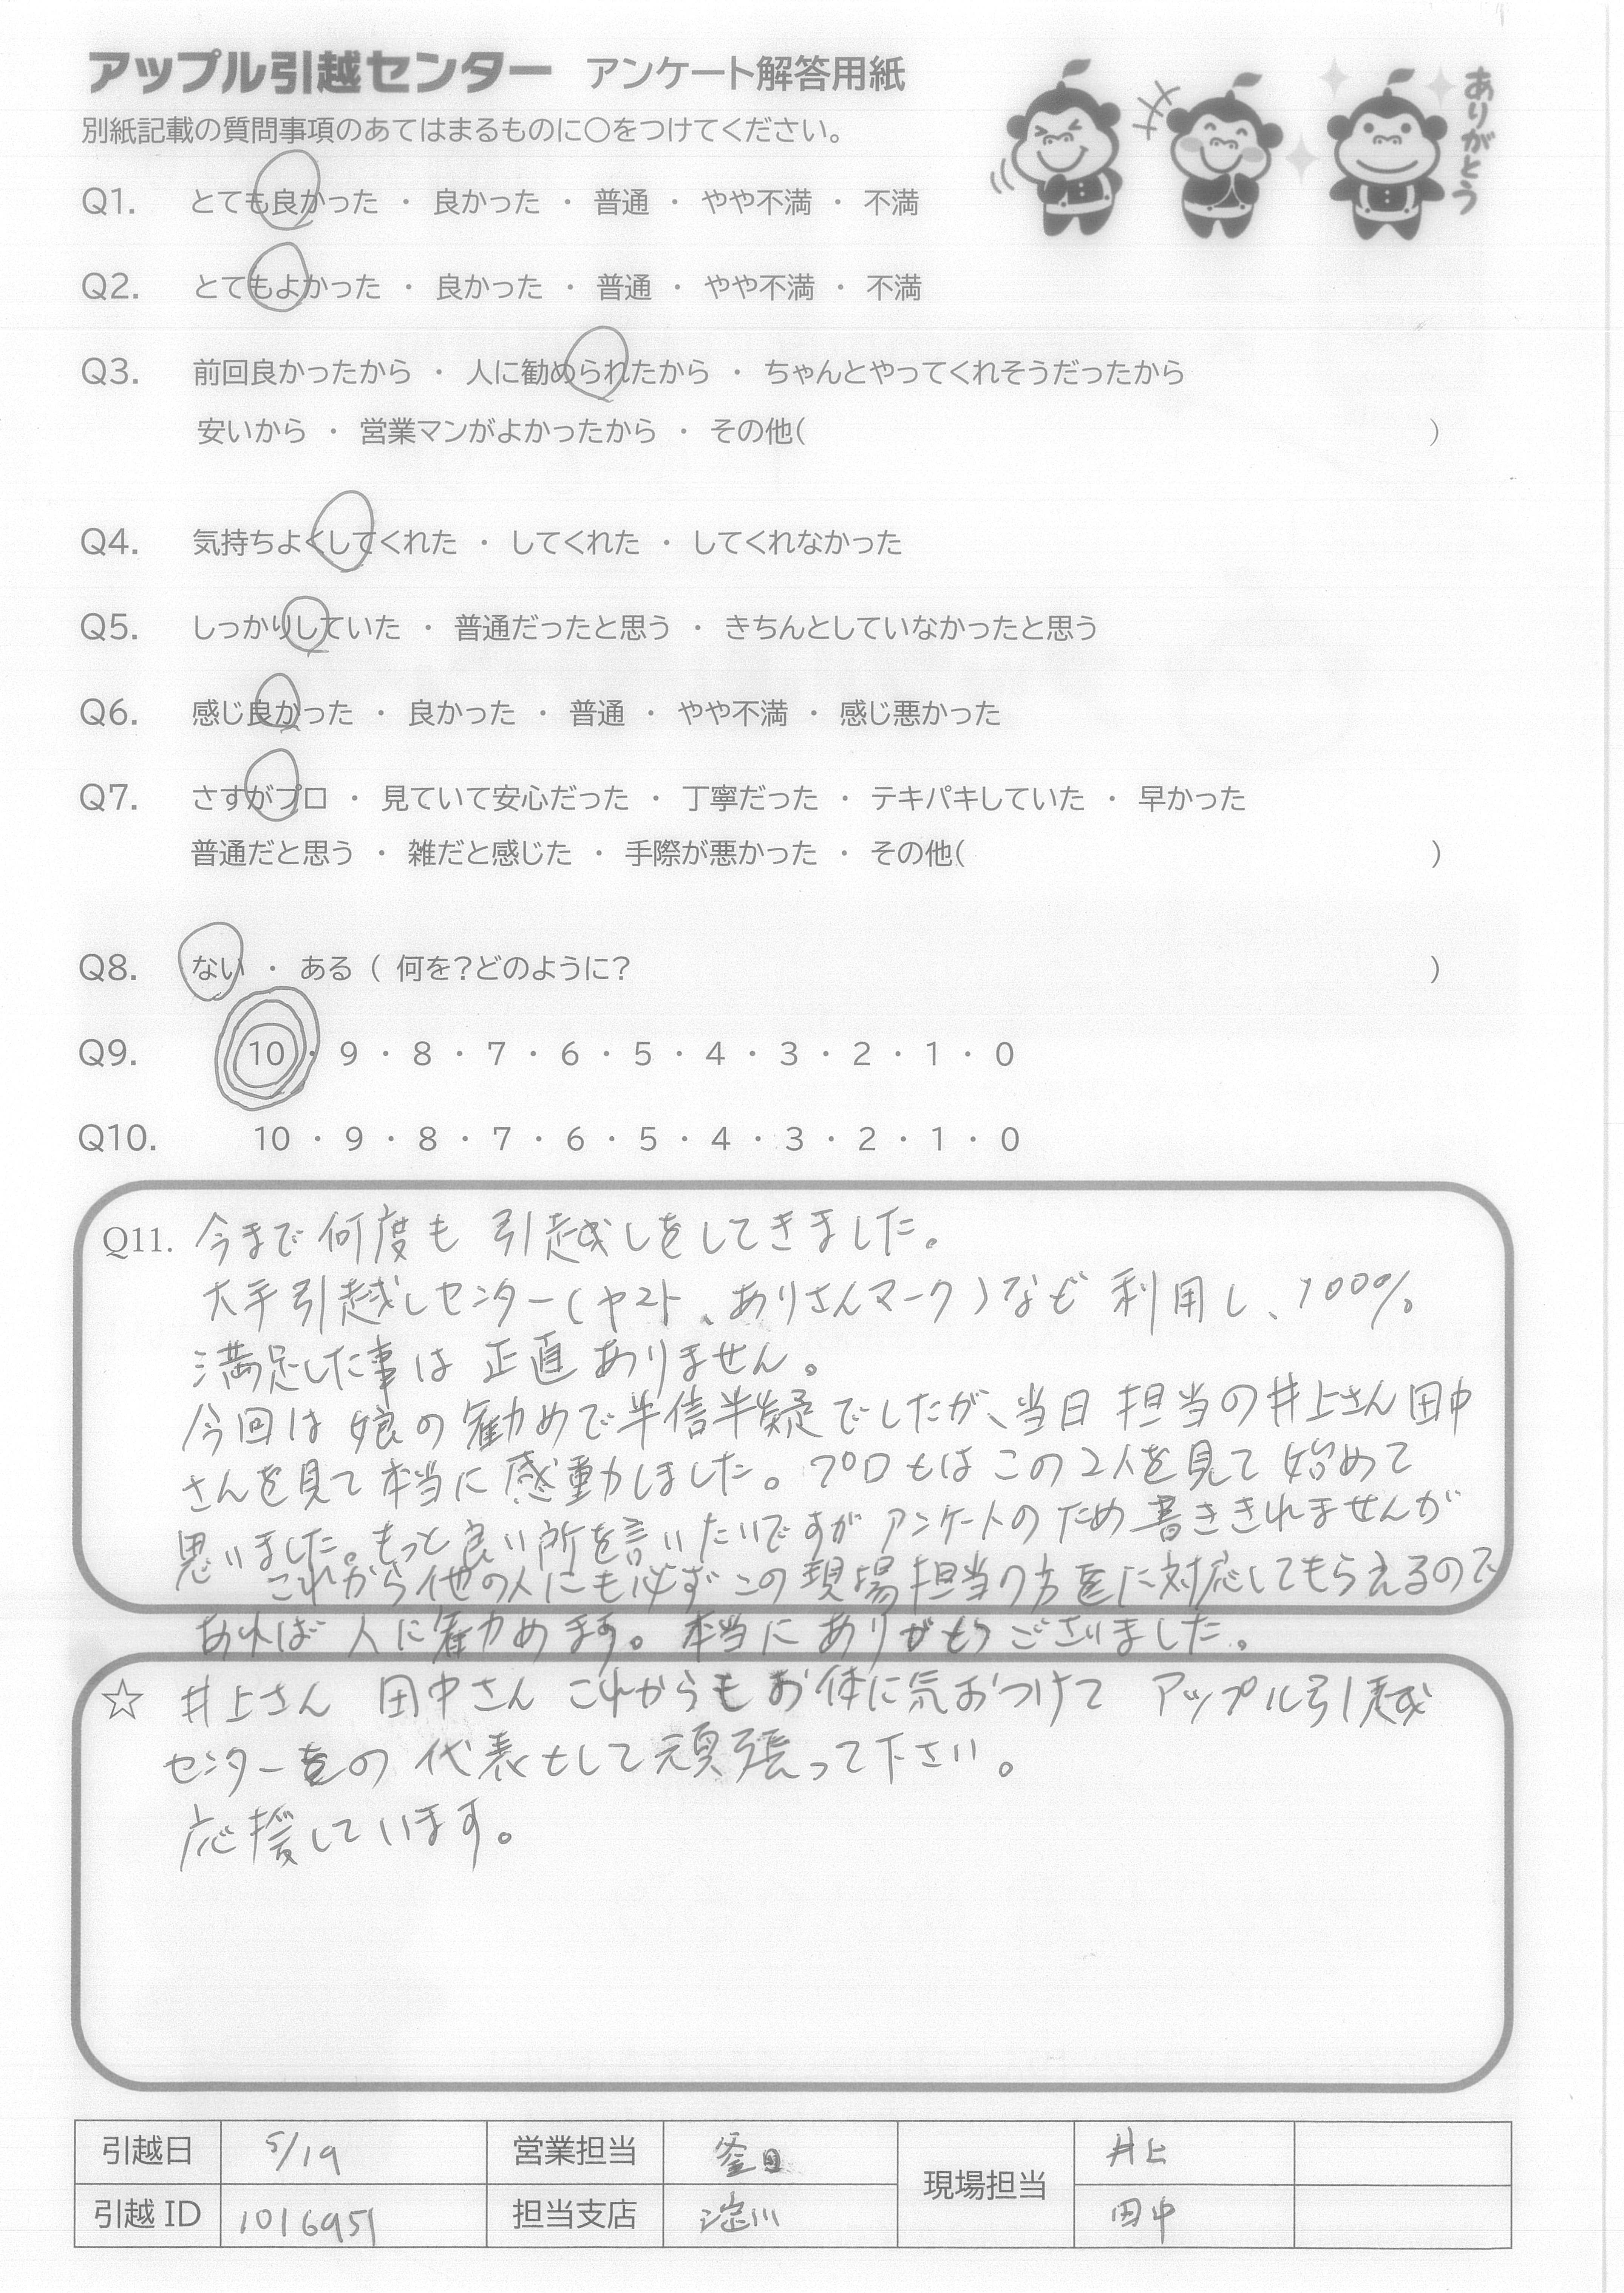 アップル引越センター アンケート解答用紙
ありがとう
別紙記載の質問事項のあてはまるものに○をつけてください。
Q1. とても良かった ・ 良かった ・ 普通 ・ やや不満 ・ 不満
Q2. とてもよかった ・ 良かった ・ 普通 ・ やや不満 ・ 不満
Q3. 前回良かったから ・ 人に勧められたから ・ ちゃんとやってくれそうだったから
安いから ・ 営業マンがよかったから ・ その他( )
Q4. 気持ちよくしてくれた ・ してくれた ・ してくれなかった
Q5. しっかりしていた ・ 普通だったと思う ・ きちんとしていなかったと思う
Q6. 感じ良かった ・ 良かった ・ 普通 ・ やや不満 ・ 感じ悪かった
Q7. さすがプロ ・ 見ていて安心だった ・ 丁寧だった ・ テキパキしていた ・ 早かった
普通だと思う ・ 雑だと感じた ・ 手際が悪かった ・ その他( )
Q8. ない ・ ある ( 何を?どのように? )
Q9. 10 ・ 9 ・ 8 ・ 7 ・ 6 ・ 5 ・ 4 ・ 3 ・ 2 ・ 1 ・ 0
Q10. 10 ・ 9 ・ 8 ・ 7 ・ 6 ・ 5 ・ 4 ・ 3 ・ 2 ・ 1 ・ 0
Q11. 今まで何度も 引越しをしてきました。
大手引越しセンター(ヤマト、ありさんマーク)など 利用し、100%
満足した事は 正直 ありません。
今回は 娘の勧めで半信半疑でしたが、当日 担当の井上さん田中
さんを見て本当に感動しました。プロとはこの2人を見て 始めて
思いました。もっと良い所を言いたいですが アンケートのため書ききれませんが
これから他の人にも必ずこの現場担当の方に対応してもらえるので
あれば 人に勧めます。本当にありがとうございました。
☆ 井上さん 田中さん これからもお体に気おつけて アップル引越
センターの 代表として頑張って下さい。
応援しています。
引越日 5/19 営業担当 現場担当 井上
引越ID 1016951 担当支店 淀川 田中